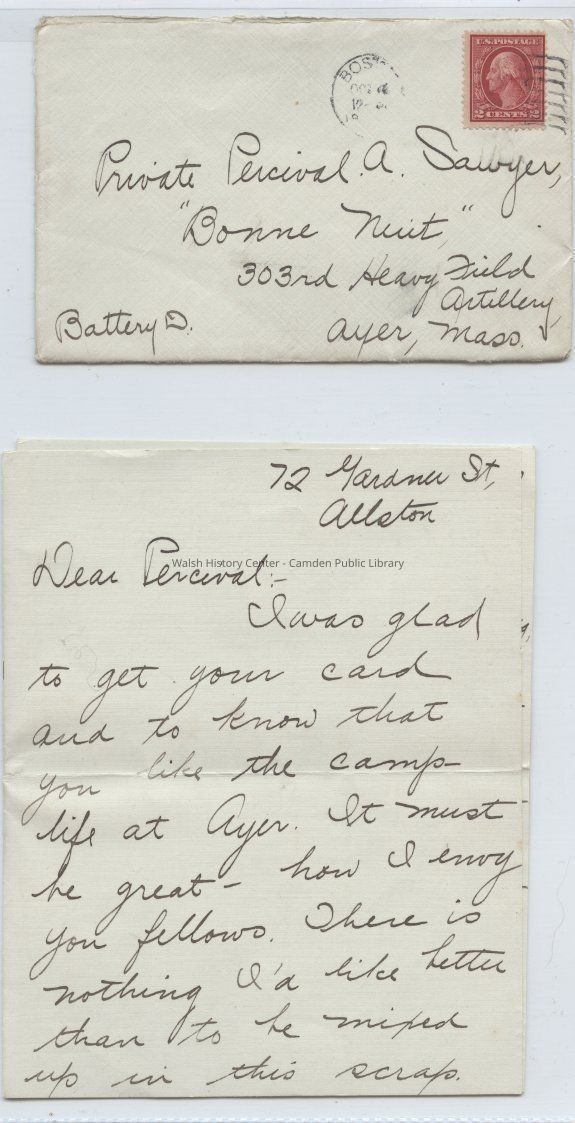 U.S. POSTAGE
2 CENTS 2
BOST
OCT
Private Percival. A. Sawyer,
"Bonne Nuit,"
303rd Heavy Field
Artillery,
Battery D.
Ayer, Mass.
72 Gardner St,
Allston
Dear Percival:-
Walsh History Center - Camden Public Library
I was glad
to get your card
and to know that
you like the camp-
life at Ayer. It must
be great - how I envy
you fellows. There is
nothing I'd like better
than to be mixed
up in this scrap.